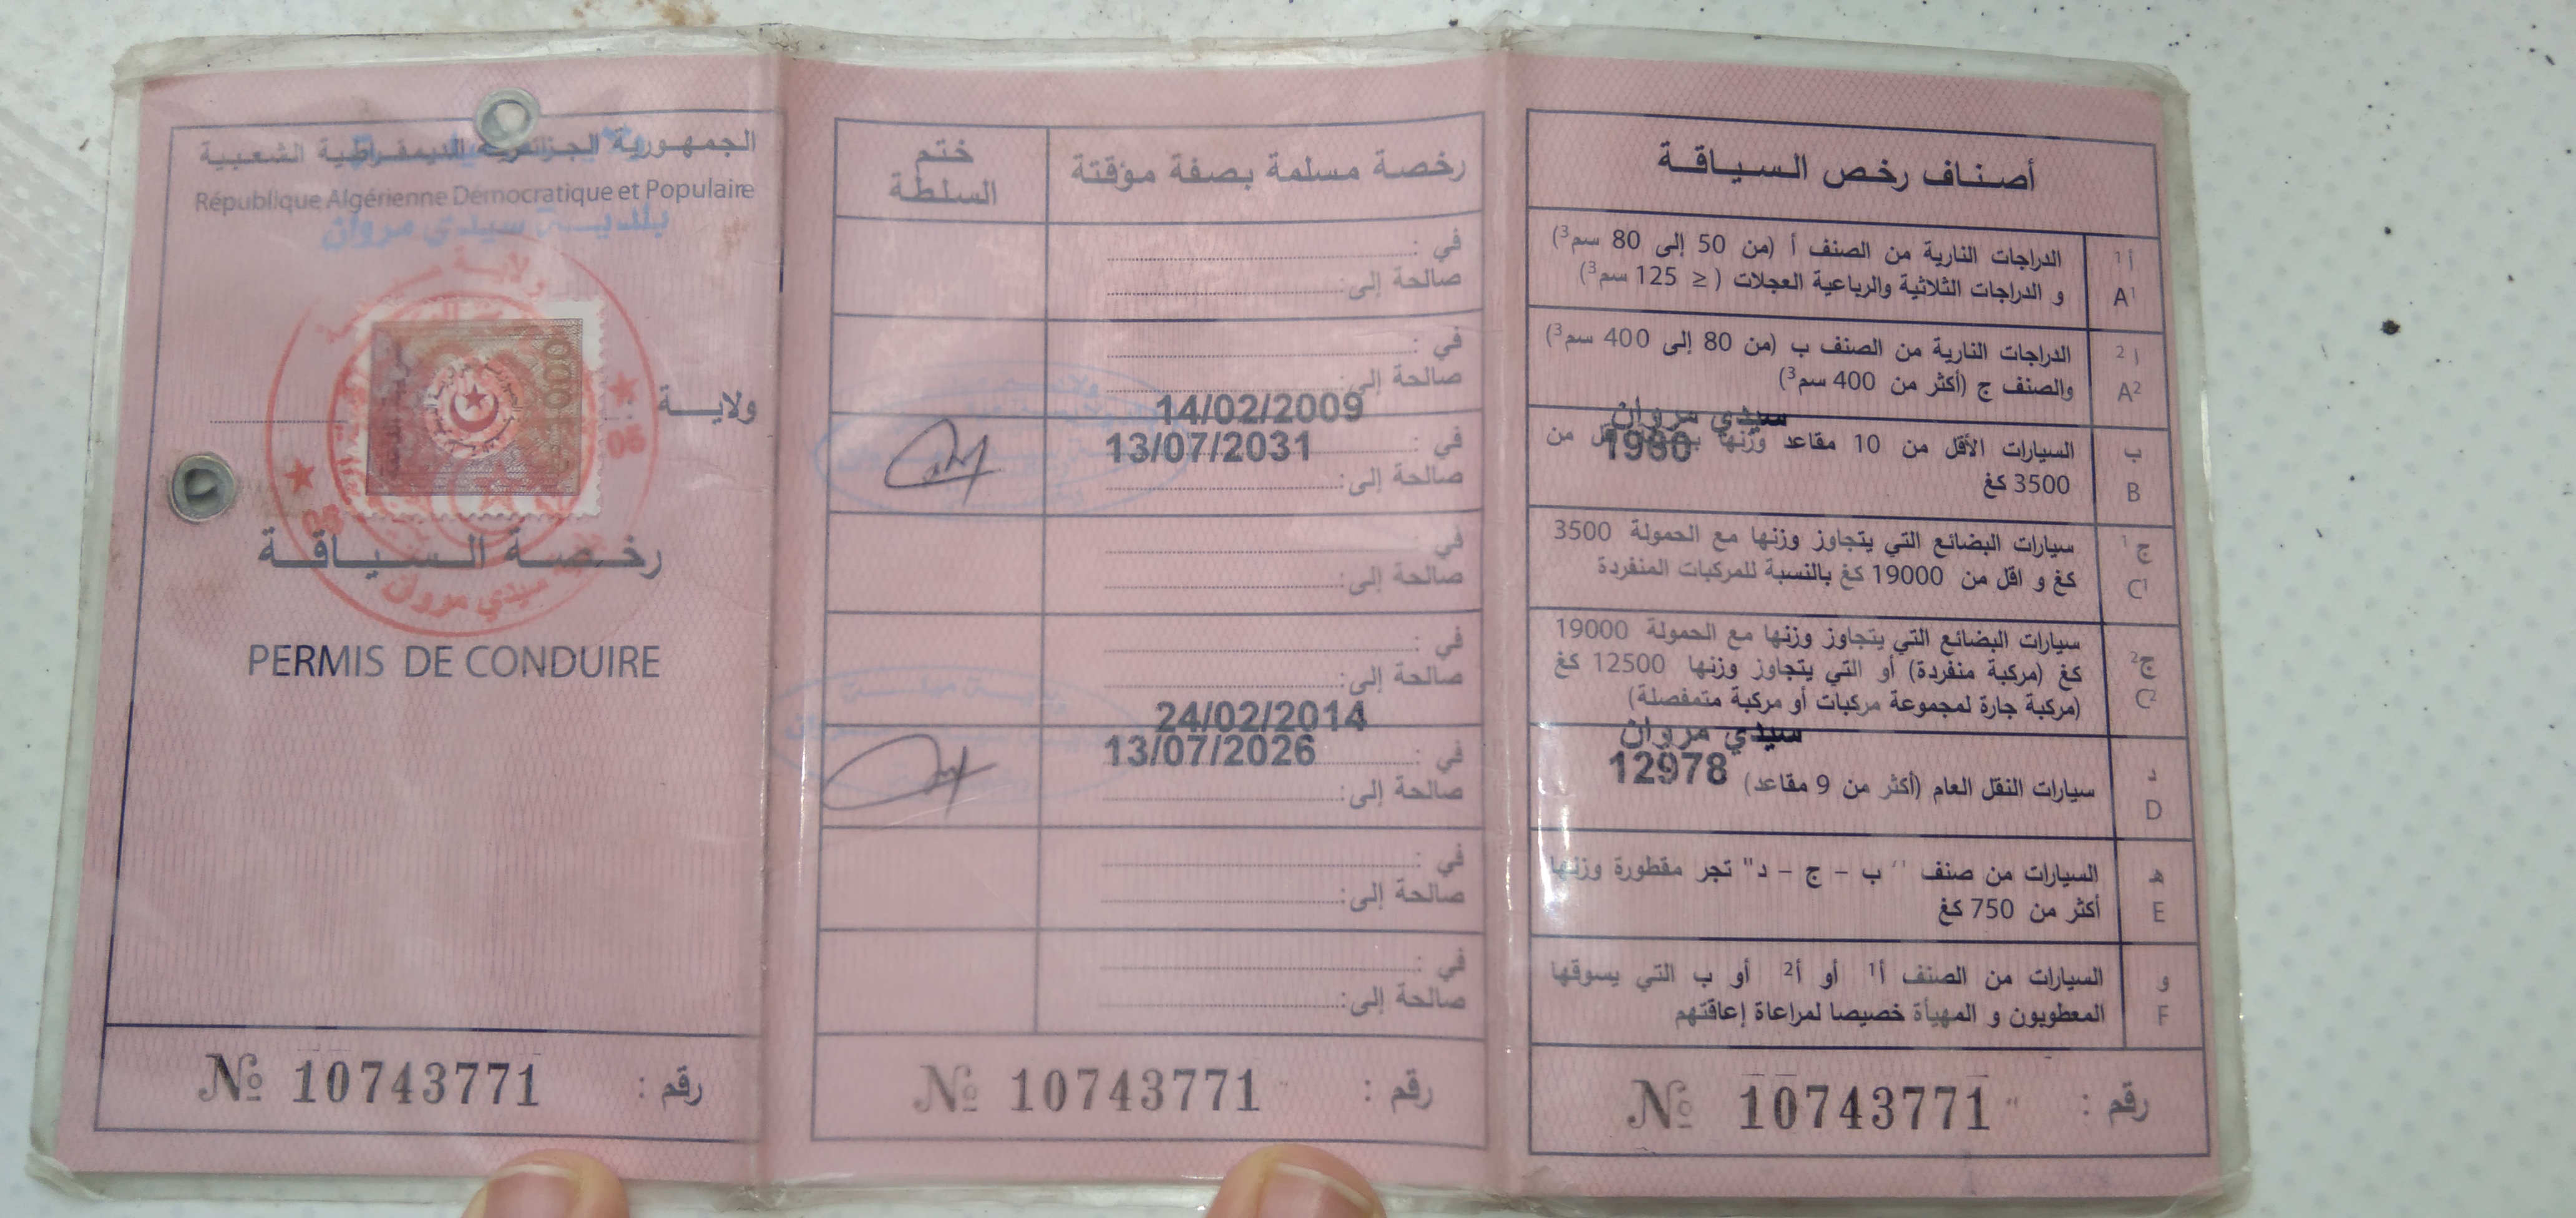 الجمهورية الجزائرية الديمقراطية الشعبية
République Algérienne Démocratique et Populaire
بلدية سيدي مروان
ولاية
05
05
سيدي مروان
رخصة السياقة
PERMIS DE CONDUIRE
№ 10743771 رقم :
رخصة مسلمة بصفة مؤقتة
ختم السلطة
في :
صالحة إلى:
في :
صالحة إلى:
14/02/2009
في : 13/07/2031
صالحة إلى:
في :
صالحة إلى:
في :
صالحة إلى:
24/02/2014
في : 13/07/2026
صالحة إلى:
في :
صالحة إلى:
في :
صالحة إلى:
№ 10743771 رقم :
أصناف رخص السياقة
أ1 A1 الدراجات النارية من الصنف أ (من 50 إلى 80 سم3)
و الدراجات الثلاثية والرباعية العجلات ( ≤ 125 سم3)
أ2 A2 الدراجات النارية من الصنف ب (من 80 إلى 400 سم3)
والصنف ج (أكثر من 400 سم3)
سيدي مروان
ب B السيارات الأقل من 10 مقاعد وزنها من
3500 كغ
ج1 C1 سيارات البضائع التي يتجاوز وزنها مع الحمولة 3500
كغ و اقل من 19000 كغ بالنسبة للمركبات المنفردة
ج2 C2 سيارات البضائع التي يتجاوز وزنها مع الحمولة 19000
كغ (مركبة منفردة) أو التي يتجاوز وزنها 12500 كغ
(مركبة جارة لمجموعة مركبات أو مركبة متمفصلة)
سيدي مروان
12978
د D سيارات النقل العام (أكثر من 9 مقاعد)
هـ E السيارات من صنف " ب - ج - د" تجر مقطورة وزنها
أكثر من 750 كغ
و F السيارات من الصنف أ1 أو أ2 أو ب التي يسوقها
المعطوبون و المهيأة خصيصا لمراعاة إعاقتهم
№ 10743771 رقم :